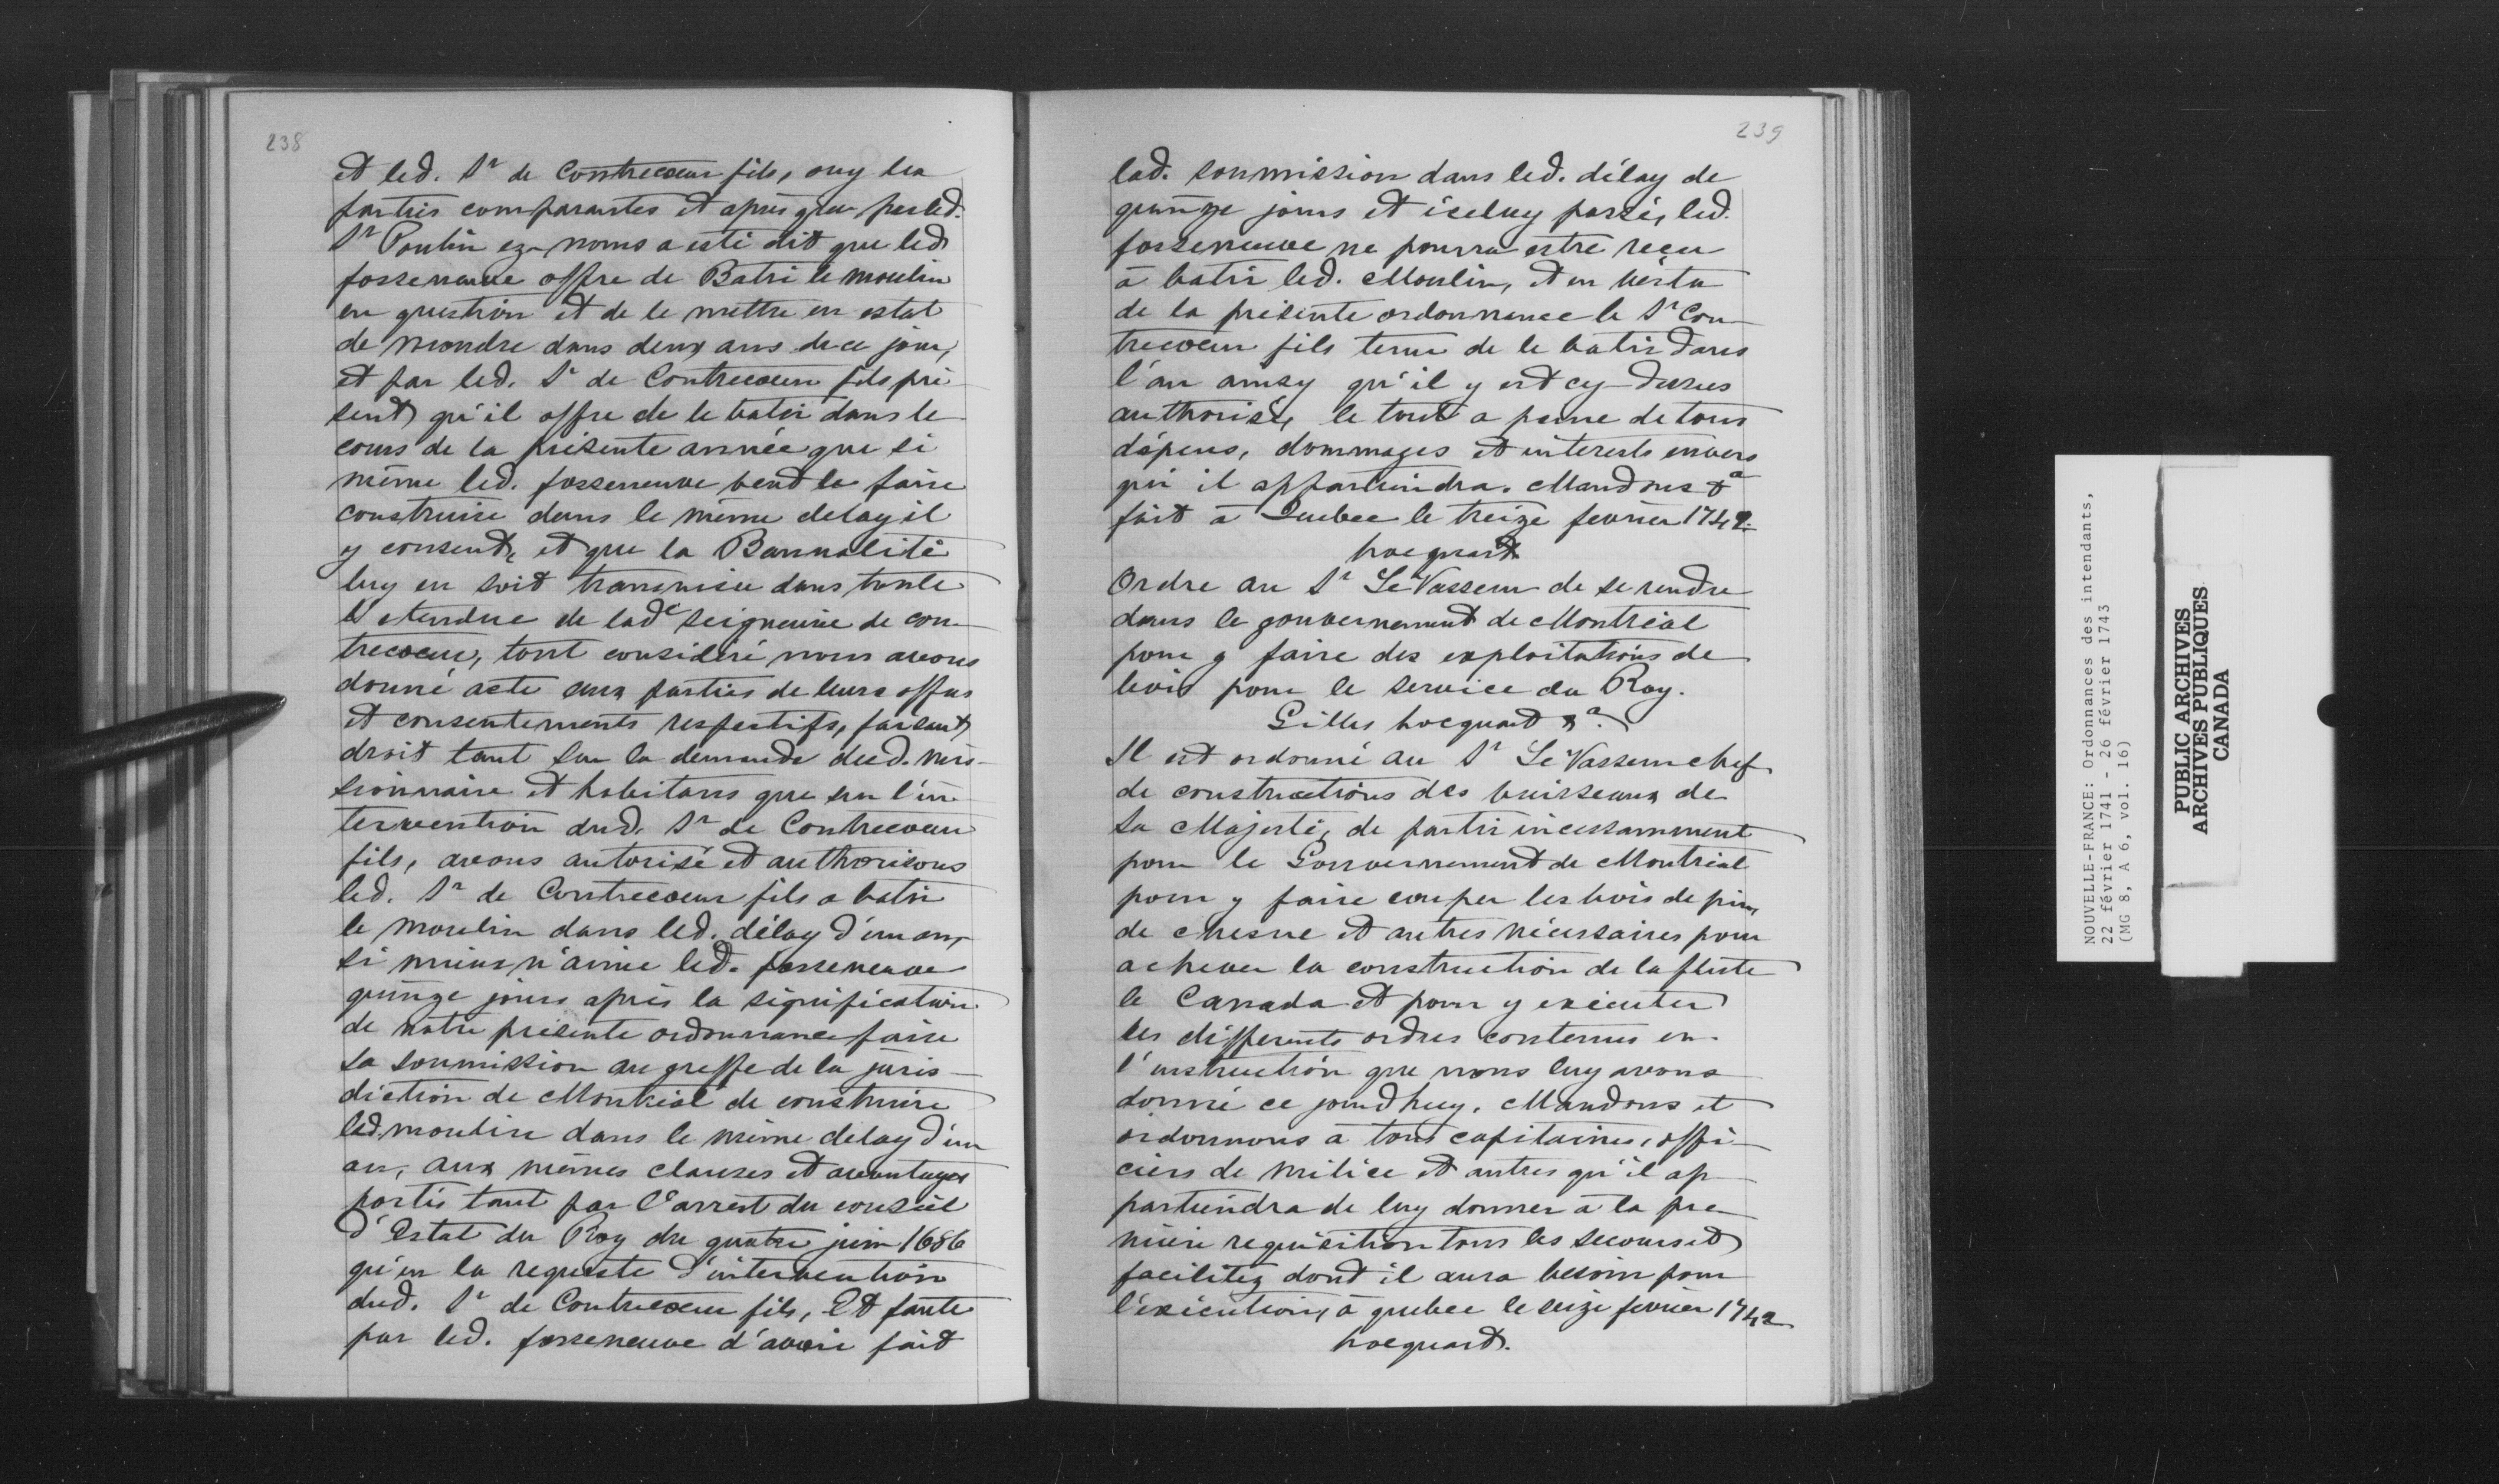 238
et led. Sr de Contrecoeur fils, ouy les
parties comparantes et apres que par led.
Sr Poulin ez-noms a esté dit que led
fosseneuve offre de Batir le moulin
en question et de le mettre en estat
de moudre dans deux ans de ce jour,
et par led. Sr de Contrecoeur fils pré
sent qu'il offre de le batir dans le
cours de la présente année que si
même led. fosseneuve veut le faire
construire dans le même delay il
y consent, et que la Bannalité
luy en soit transmise dans toute
l'etendue de lade seigneurie de con-
trecoeur, tout considéré nous avons
donné acte aux parties de leurs offres
et consentements respectifs, faisant
droit tant sur la demande dud. mis-
sionnaire et habitans que sur l'in-
tervention dud. Sr de Contrecoeur
fils, avons autorisé et authorisons
led. Sr de Contrecoeur fils a batir
le moulin dans led. délay d'un an,
si mieux n'aime led. fosseneuve
quinze jours après la signification
de notre présente ordonnance faire
sa soumission au greffe de la juris-
diction de Montréal de construire
led. moulin dans le même delay d'un
an, aux mêmes clauses et avantages
portés tant par l'arrest du conseil
d'Estat du Roy du quatre juin 1686
qu'en la requeste d'intervention
dud. Sr de Contrecoeur fils, Et faute
par led. fosseneuve d'avoir fait
239
lad. soumission dans led. délay de
quinze jours et iceluy passé, led.
fosseneuve ne pourra estre reçu
à batir led. Moulin, et en vertu
de la présente ordonnance le Sr Con-
trecoeur fils tenu de le batir dans
l'an ainsy qu'il y est cy-dessus
authorisé, le tout a peine de tous
dépens, dommages et interests envers
qui il appartiendra. Mandons &a
fait à Quebec le treize fevrier 1742.
hocquart
Ordre au Sr Le Vasseur de se rendre
dans le gouvernement de Montréal
pour y faire des exploitations de
bois pour le service du Roy.
Gilles hocquart &a.
Il est ordonné au Sr Le Vasseur chef
de constructions des vaisseaux de
Sa Majesté, de partir incessamment
pour le Gouvernement de Montréal
pour y faire couper les bois de pin,
de chesne et autres nécessaires pour
achever la construction de la fluste
le Canada et pour y exécuter
les differents ordres contenus en
l'instruction que nous luy avons
donné ce jourdhuy. Mandons et
ordonnons à tous capitaines, offi-
ciers de milice et autres qu'il ap-
partiendra de luy donner à la pre-
mière requisition tous les secours et
facilitez dont il aura besoin pour
l'exécution, à quebec le seize fevrier 1742
hocquart.
NOUVELLE-FRANCE: Ordonnances des intendants,
22 février 1741 - 26 février 1743
(MG 8, A 6, vol. 16)
PUBLIC ARCHIVES
ARCHIVES PUBLIQUES
CANADA